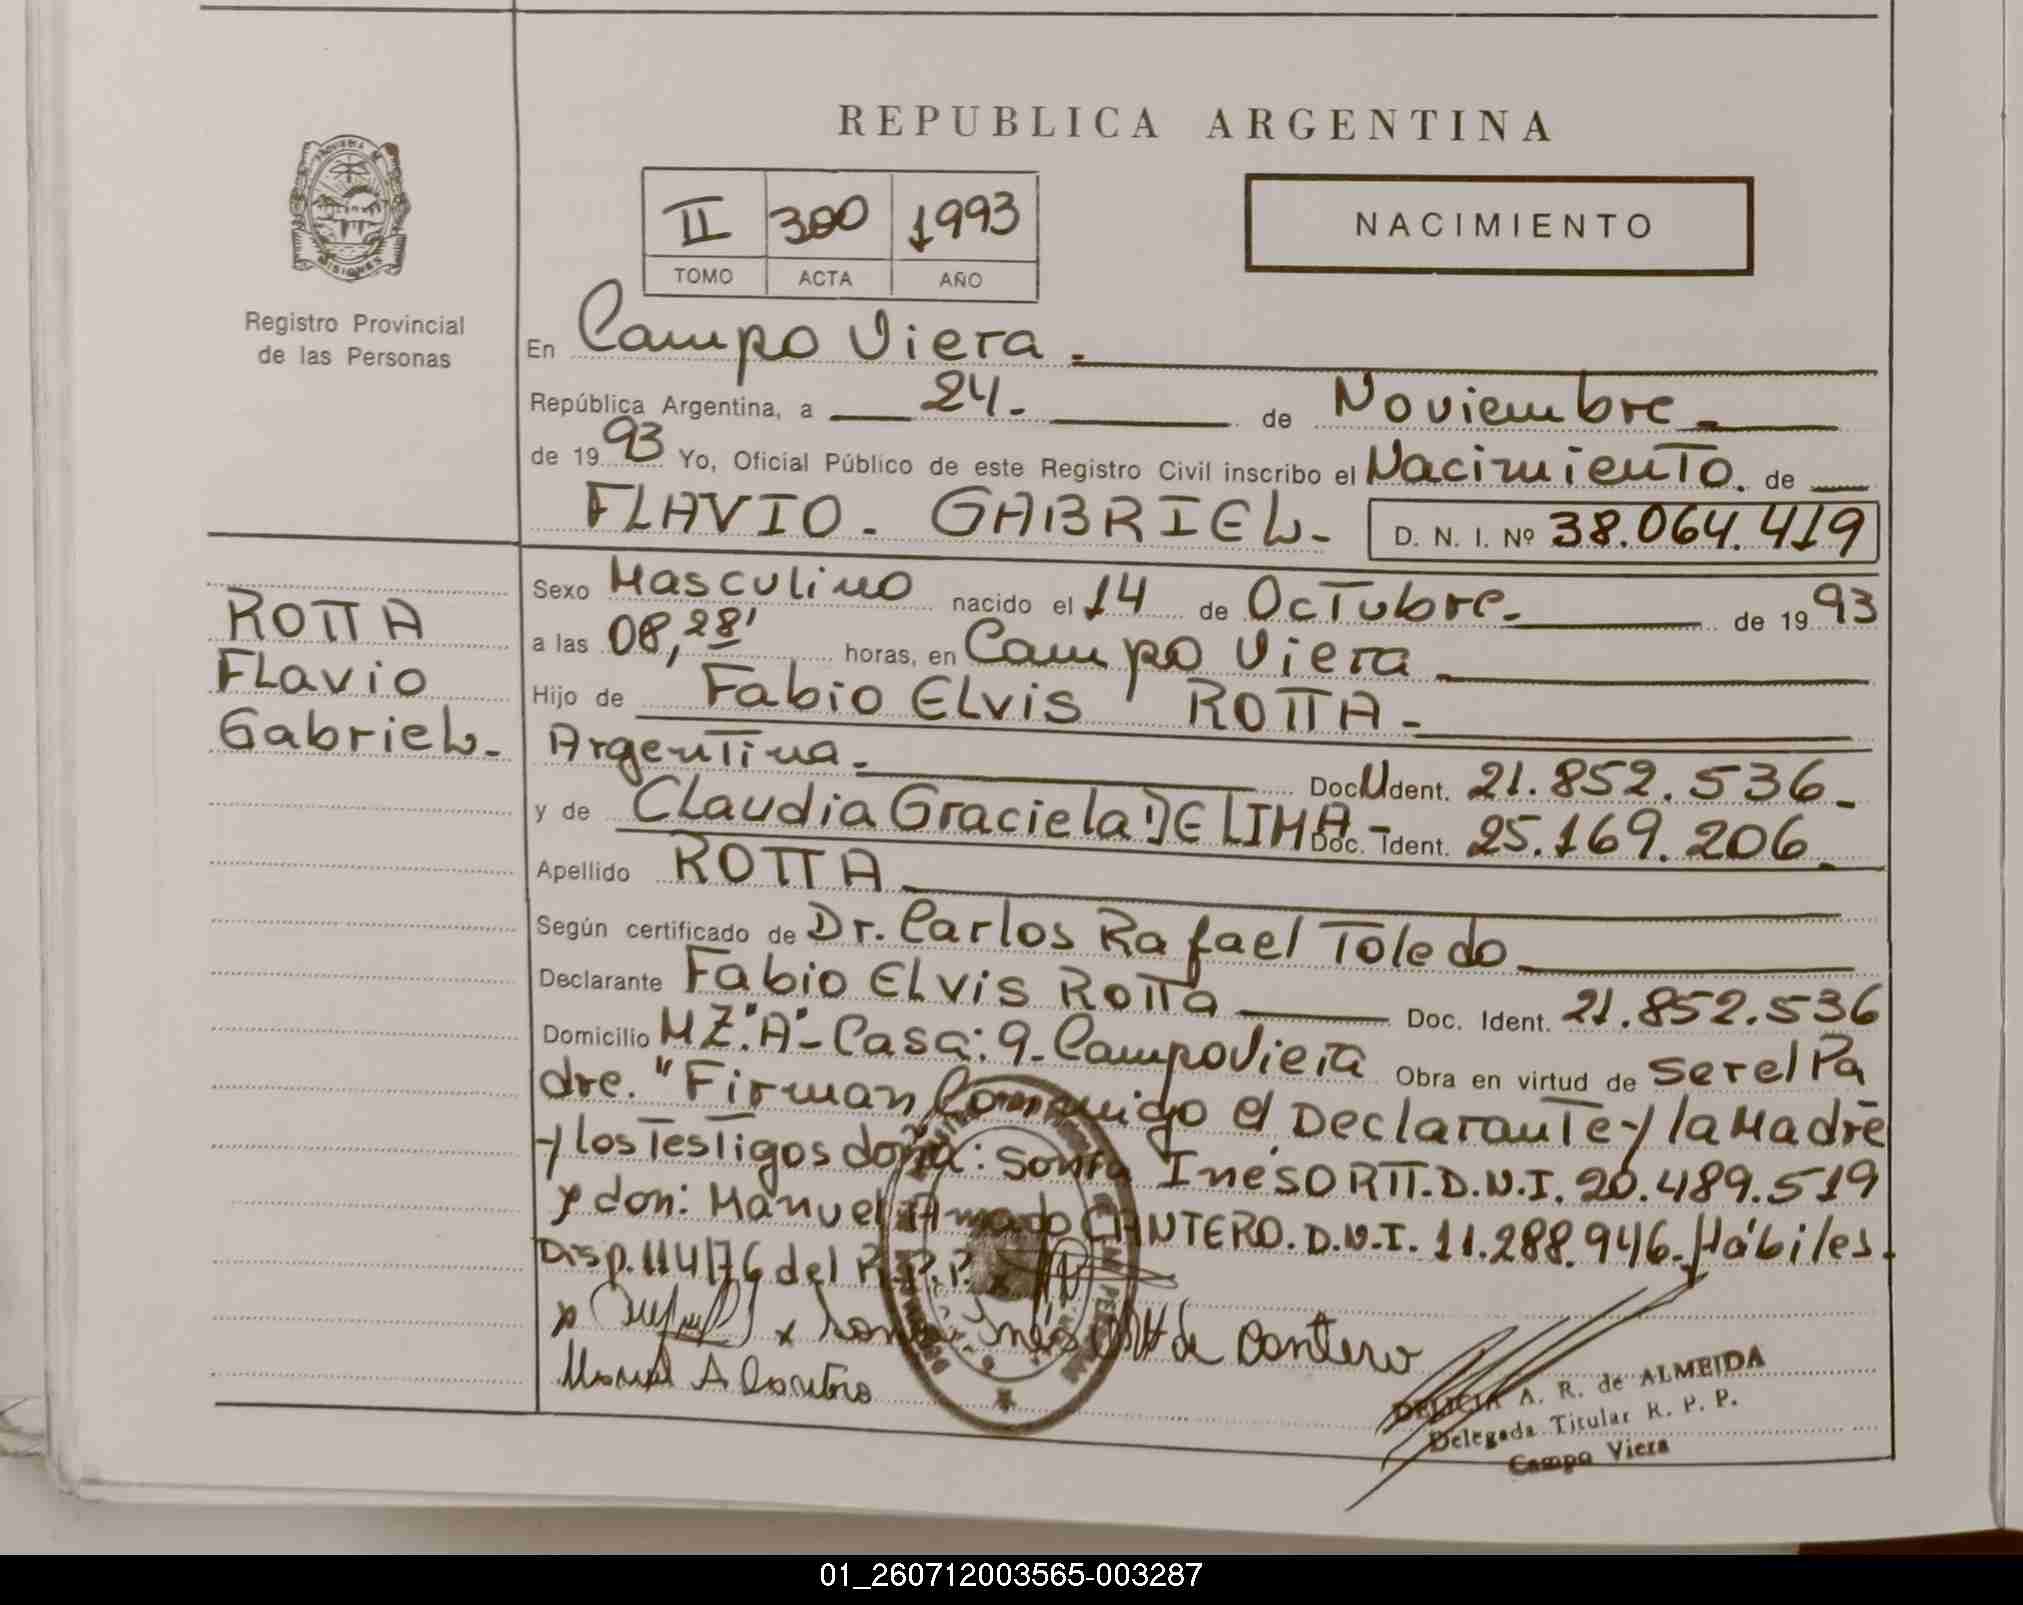 REPUBLICA ARGENTINA
PROVINCIA DE MISIONES
Registro Provincial
de las Personas
II 300 1993
TOMO ACTA AÑO
NACIMIENTO
En Campo Viera.
República Argentina, a 24. de Noviembre.
de 1993 Yo, Oficial Público de este Registro Civil inscribo el Nacimiento. de
FLAVIO. GABRIEL. D. N. I. Nº 38.064.419
ROTTA
Flavio
Gabriel.
Sexo Masculino nacido el 14 de Octubre. de 1993
a las 08,28' horas, en Campo Viera
Hijo de Fabio Elvis ROTTA.
Argentina. Doc. U Ident. 21.852.536.
y de Claudia Graciela DE LIMA. Doc. Ident. 25.169.206.
Apellido ROTTA
Según certificado de Dr. Carlos Rafael Toledo
Declarante Fabio Elvis Rotta Doc. Ident. 21.852.536
Domicilio MZ."A"- Casa: 9. Campo Viera Obra en virtud de ser el Pa
dre. "Firman Conmigo el Declarante y la Madre
y los Testigos doña: Sonia Inés ORTT. D.N.I. 20.489.519
y don: Manuel Amado CANTERO. D.N.I. 11.288.946. Hábiles.
Disp. 114/76 del R.P.P. x
x x Sonia Inés Ortt de Cantero
Manuel A Cantero
DELICIA A. R. de ALMEIDA
Delegada Titular R. P. P.
Campo Viera
01_260712003565-003287